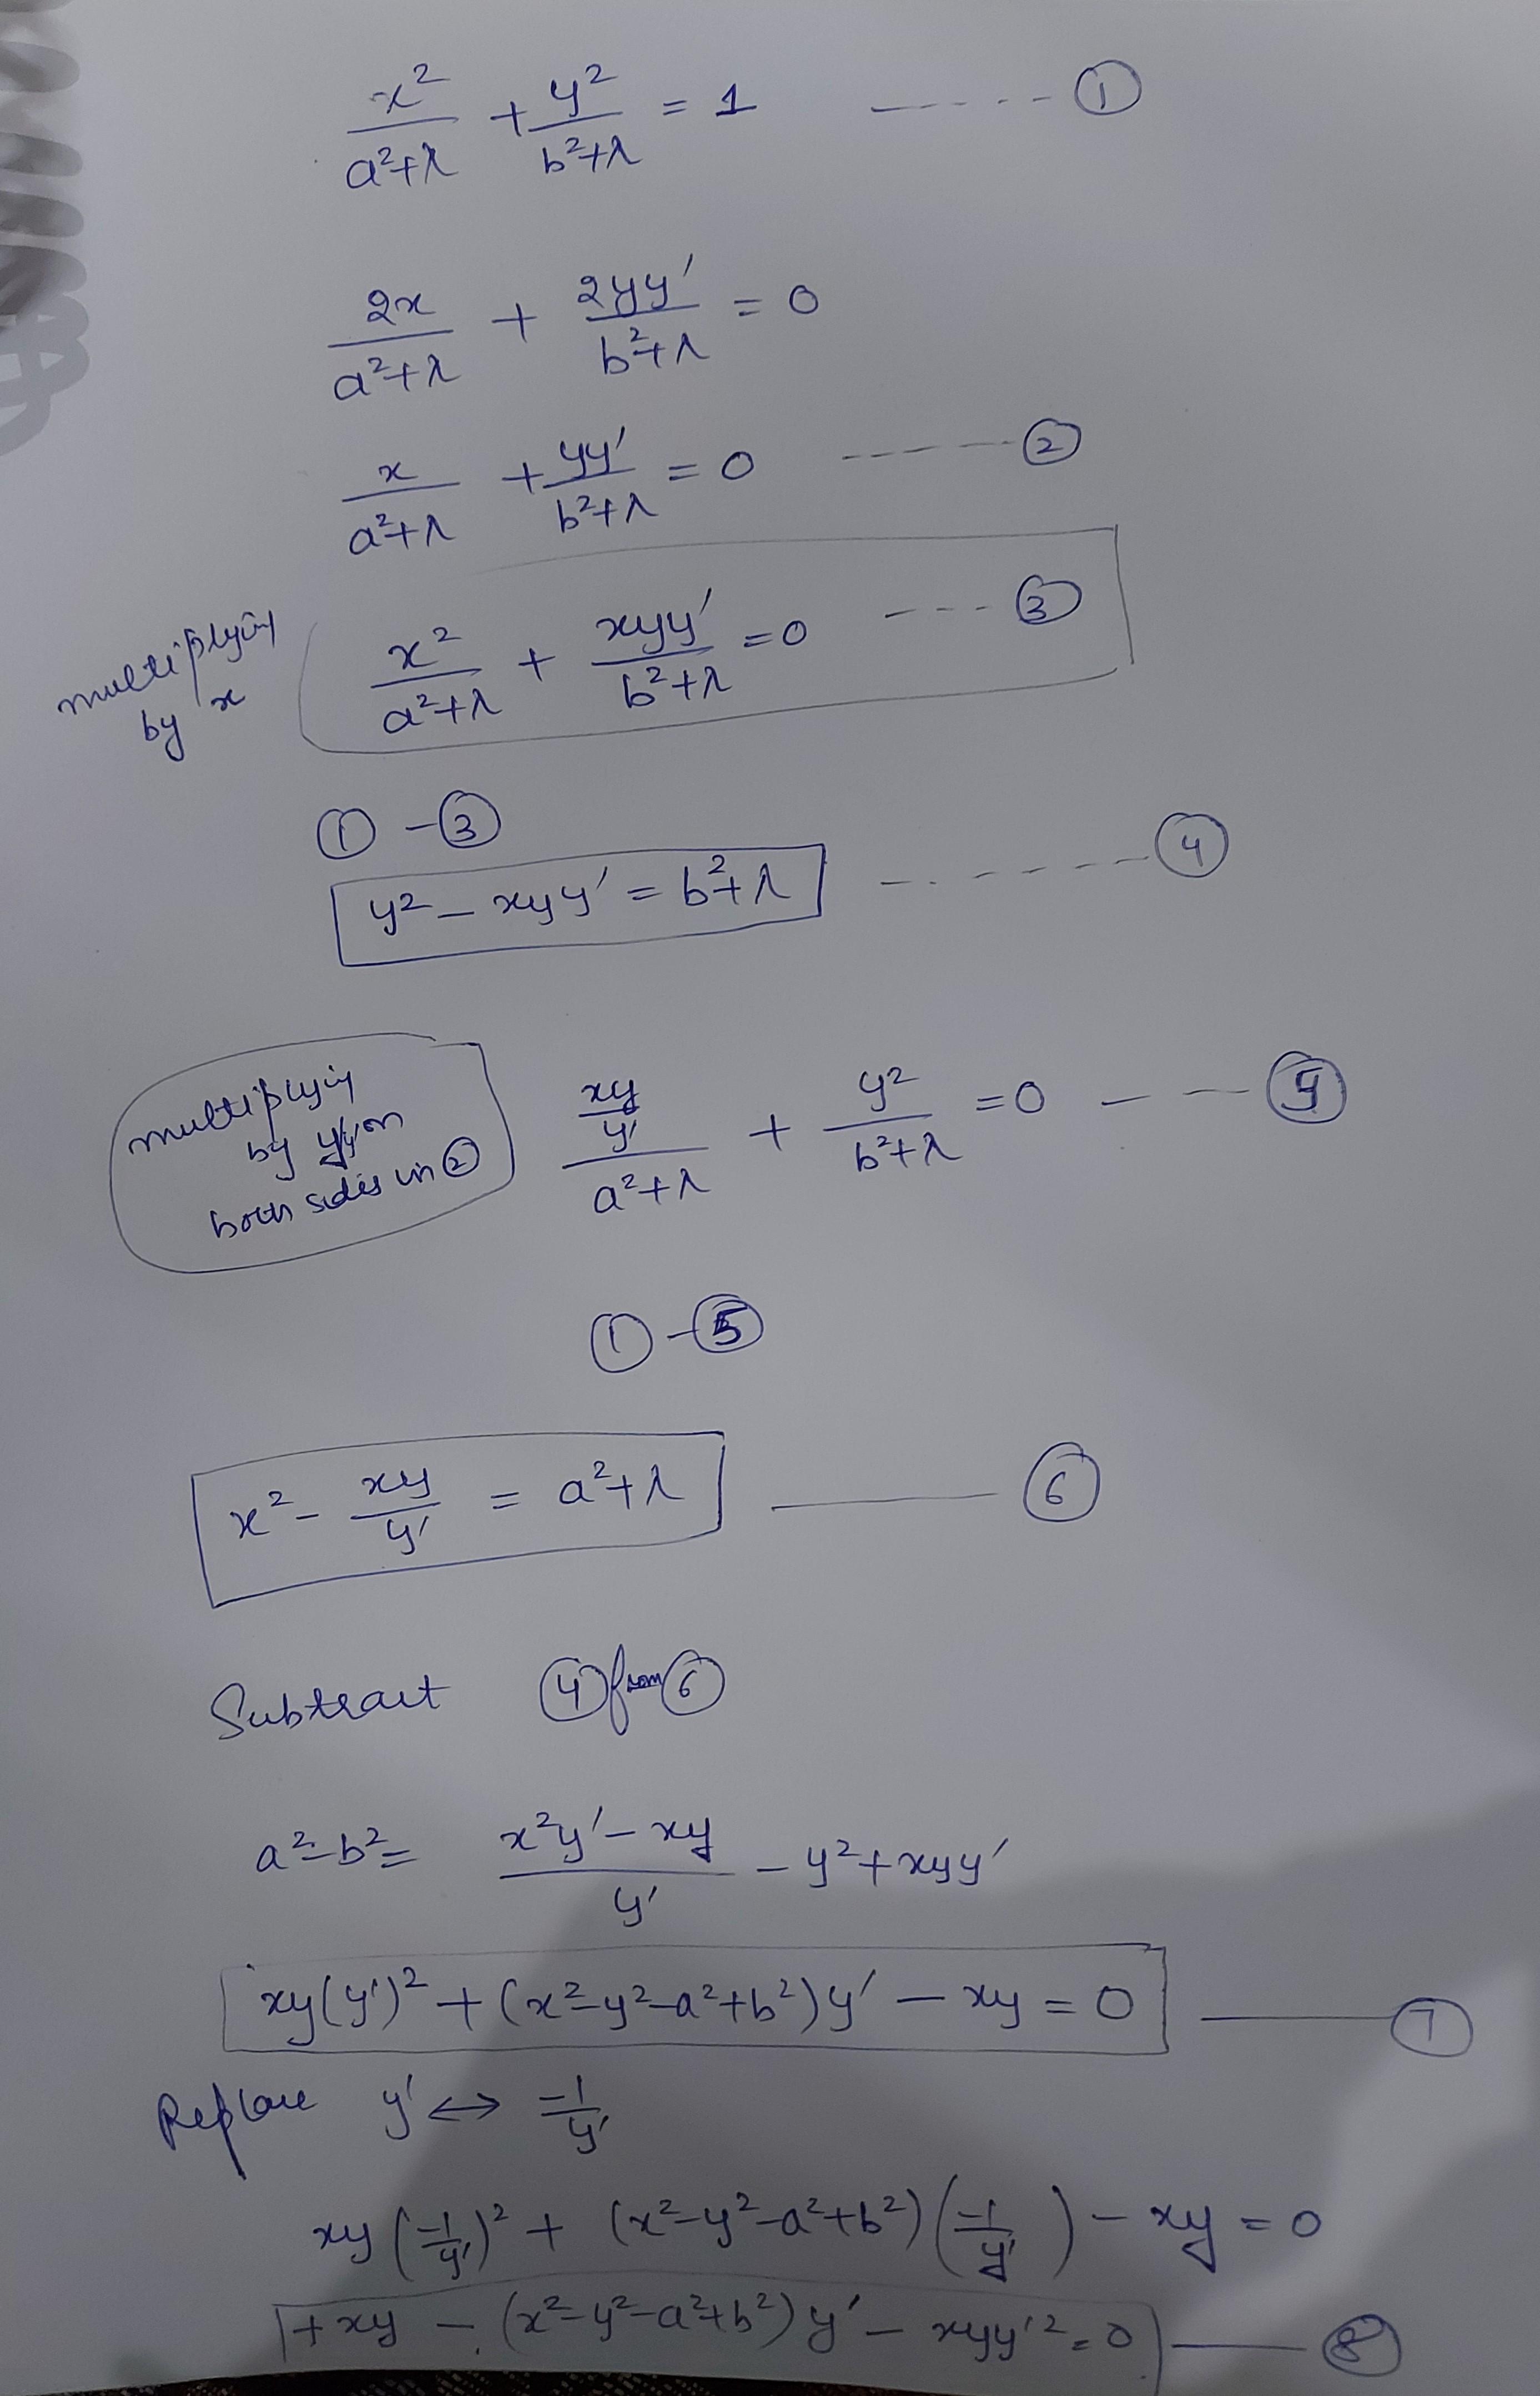 x²/(a²+λ) + y²/(b²+λ) = 1 ------ ①
2x/(a²+λ) + 2yy'/(b²+λ) = 0
x/(a²+λ) + yy'/(b²+λ) = 0 ------ ②
multiplying by x
x²/(a²+λ) + xyy'/(b²+λ) = 0 ---- ③
① - ③
y² - xyy' = b²+λ ------ ④
multiplying
by y/y' on
both sides in ②
(xy/y')/(a²+λ) + y²/(b²+λ) = 0 --- ⑤
① - ⑤
x² - xy/y' = a²+λ —— ⑥
Subtract ④ from ⑥
a²-b² = (x²y'-xy)/y' - y² + xyy'
xy(y')² + (x²-y²-a²+b²)y' - xy = 0 —— ⑦
Replace y' ↔ -1/y'
xy(-1/y')² + (x²-y²-a²+b²)(-1/y') - xy = 0
+xy - (x²-y²-a²+b²)y' - xyy'² = 0 —— ⑧